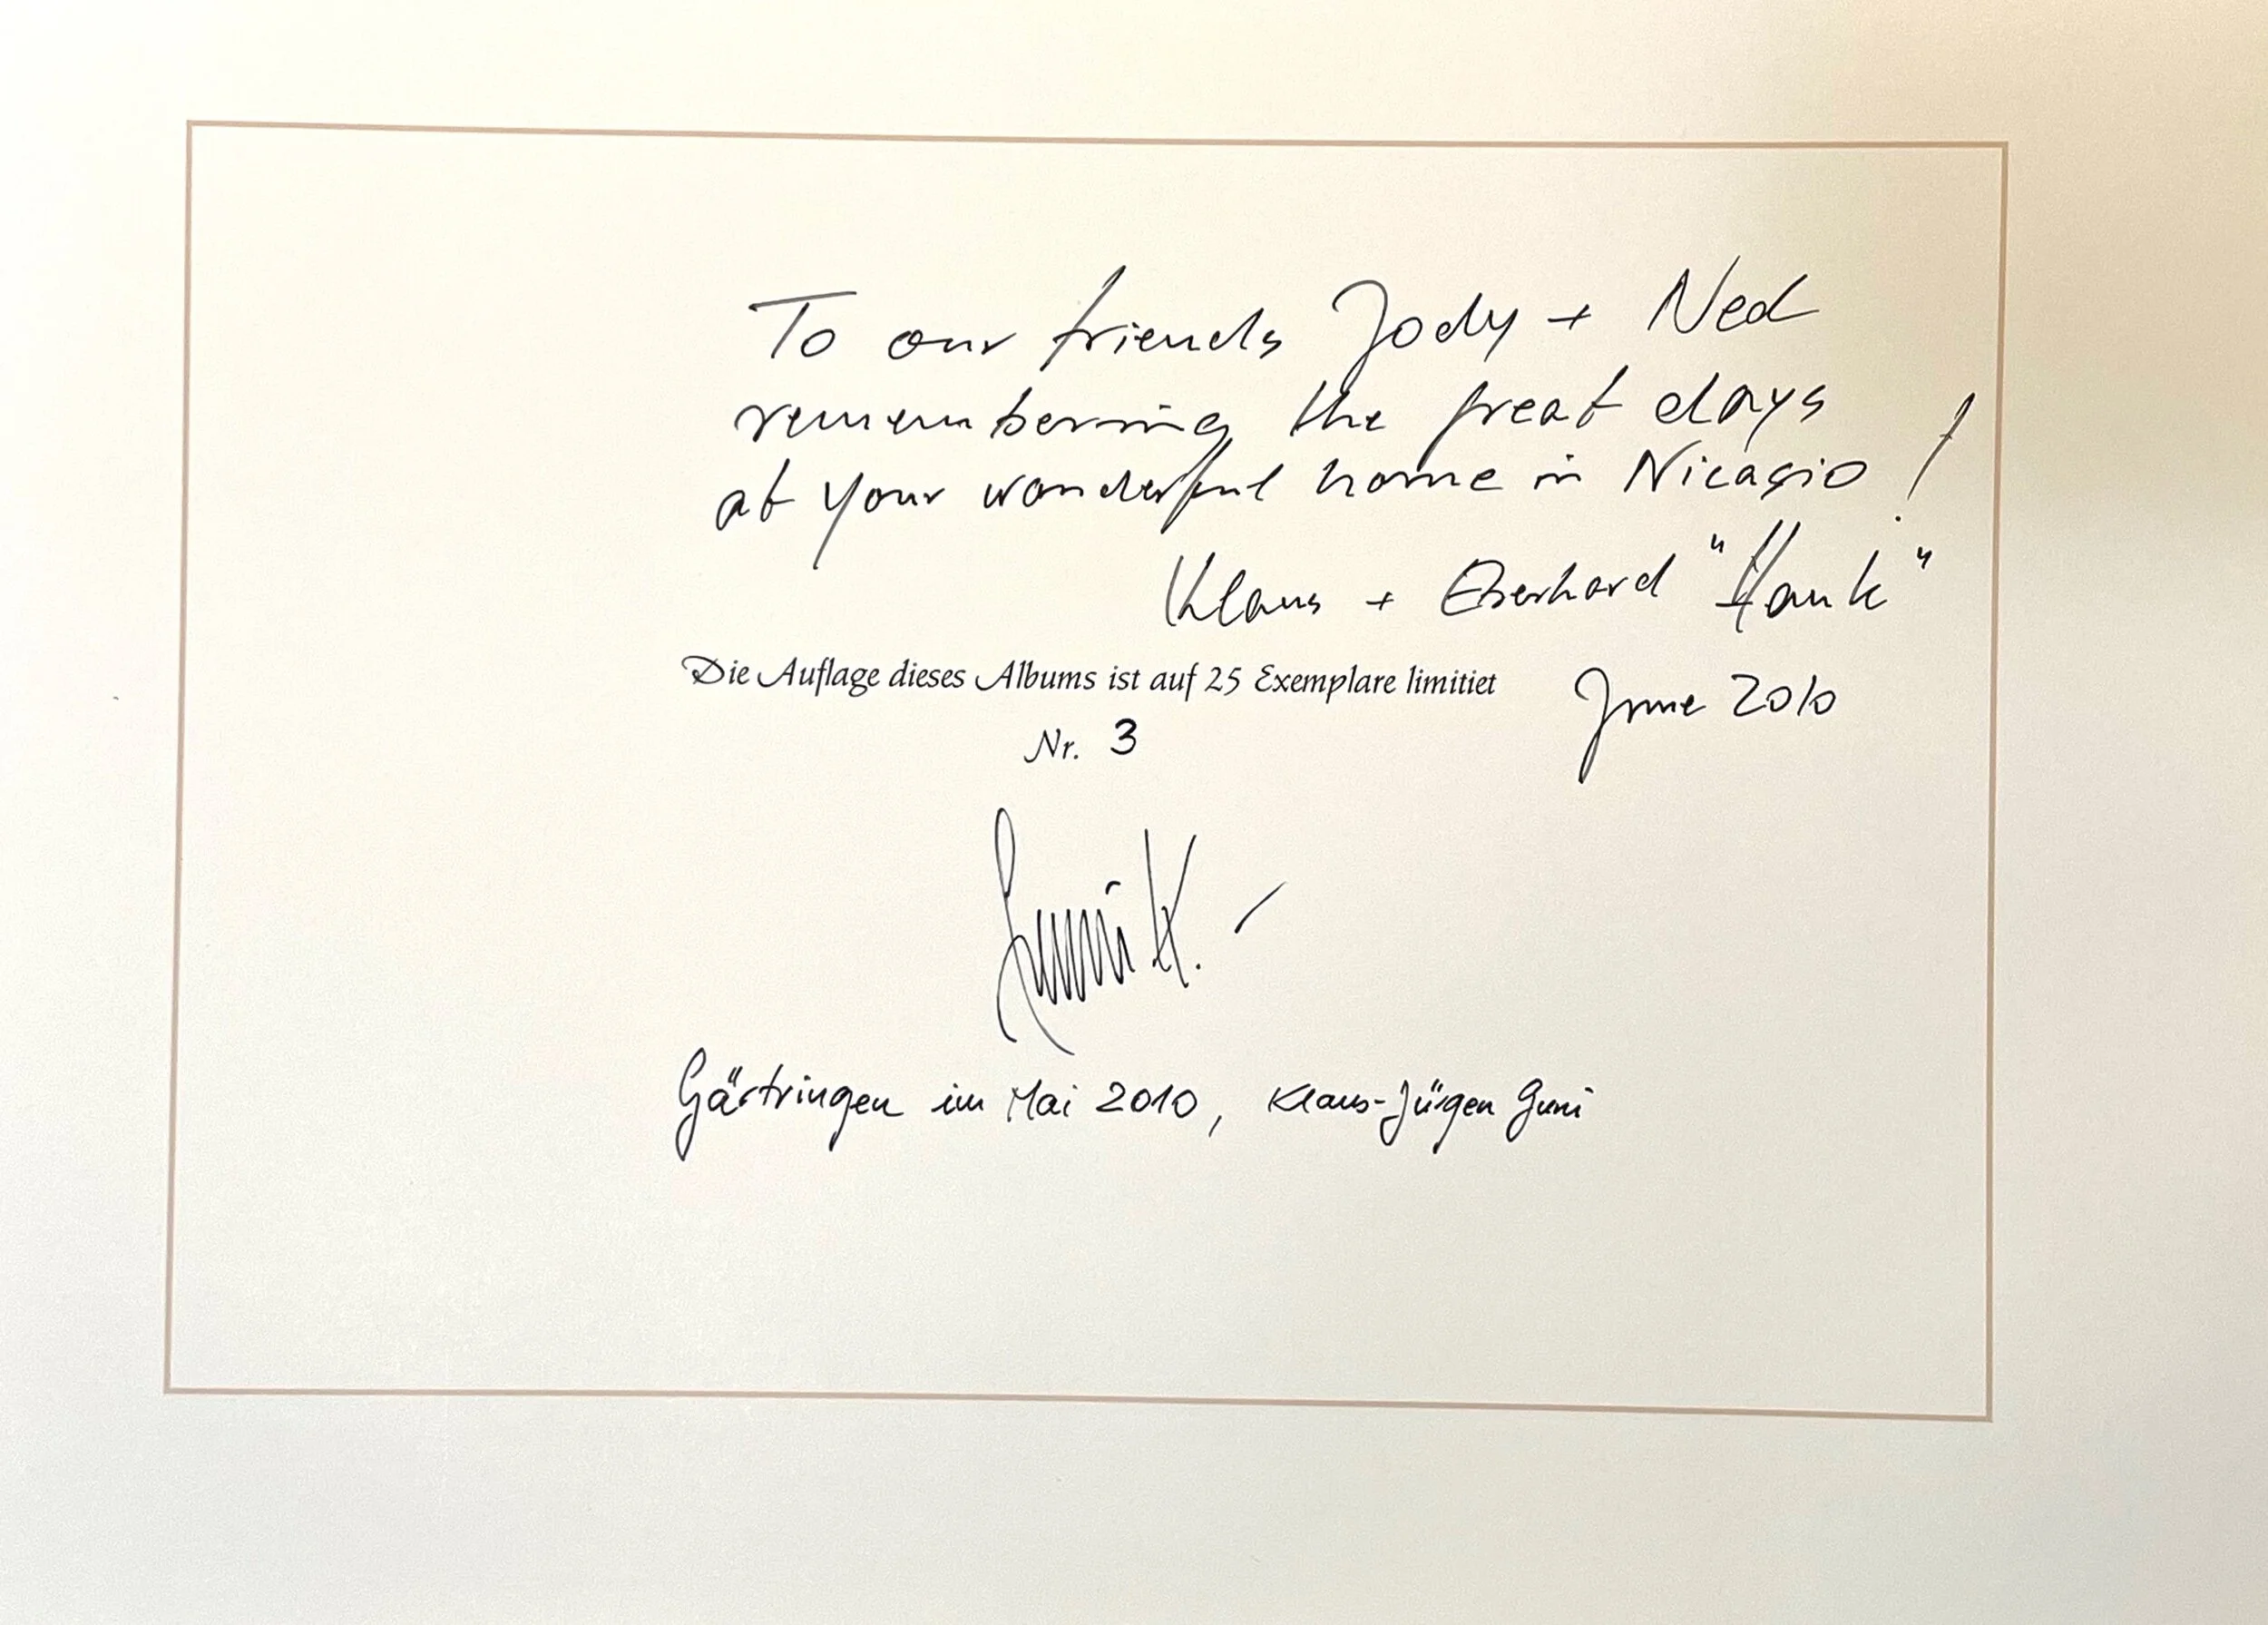 To our friends Jody + Ned
remembering the great days
at your wonderful home in Nicasio!
Klaus + Eberhard "Hank"
Die Auflage dieses Albums ist auf 25 Exemplare limitiet
June 2010
Nr. 3
Gärtringen im Mai 2010, Klaus-Jürgen